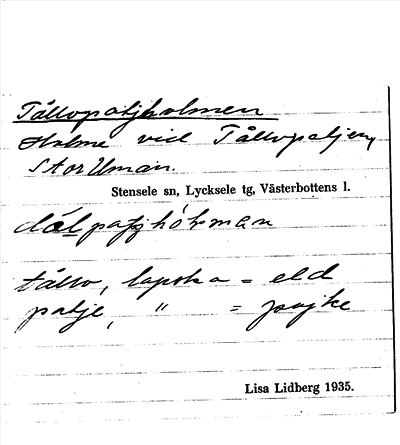 Tållvopatjholmen
Holme vid Tållvopatjen,
Stor Uman.
Stensele sn, Lycksele tg, Västerbottens l.
tållvo, lapska = eld
patje, " = pojke
Lisa Lidberg 1935.